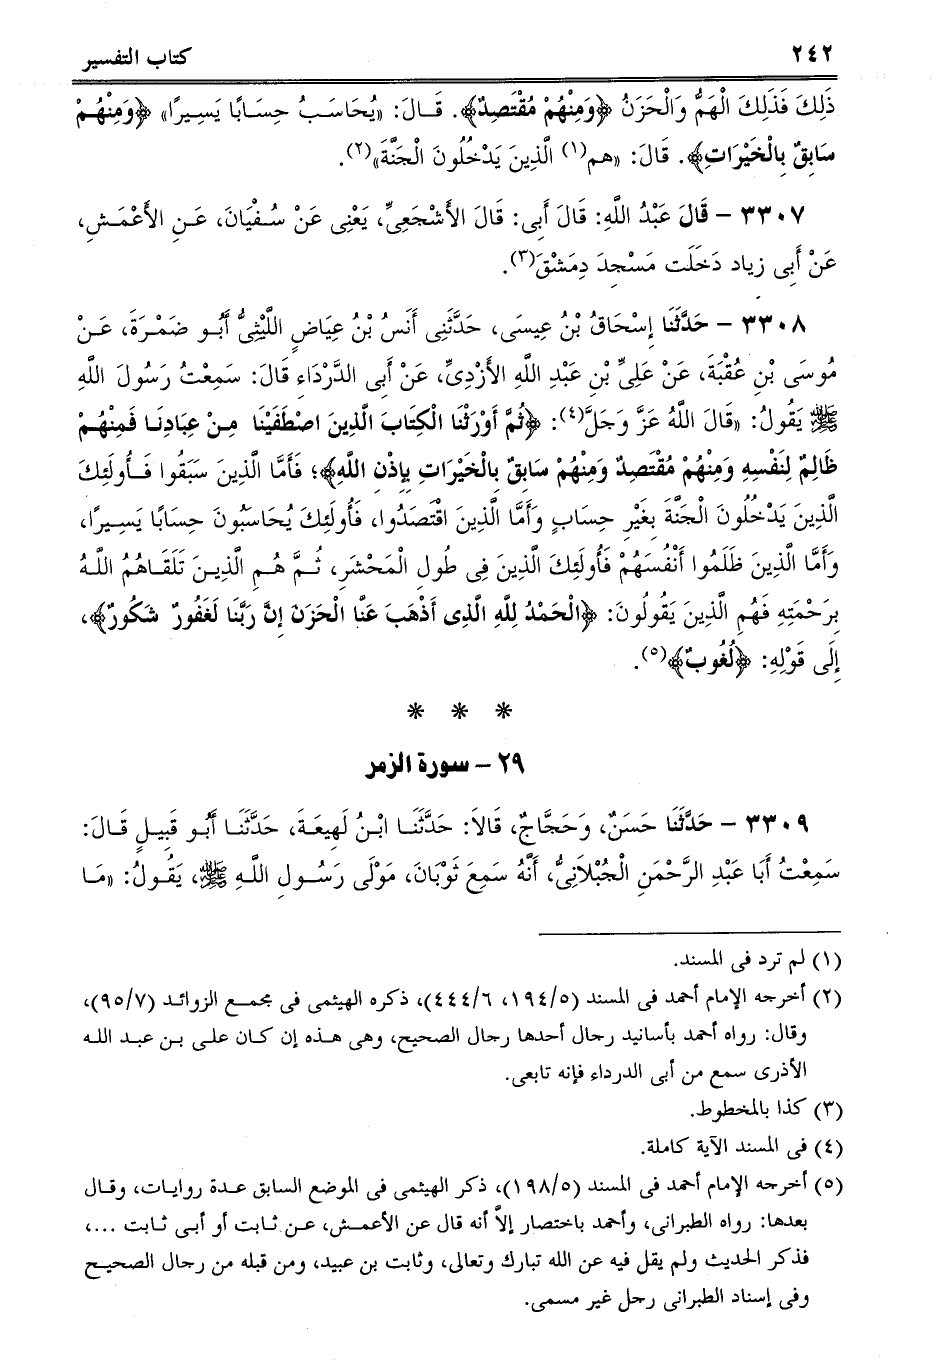 ٢٤٢ كتاب التفسير
ذَلِكَ فَذَلِكَ الْهَمُّ وَالْحَزَنُ ﴿وَمِنْهُمْ مُقْتَصِدٌ﴾. قَالَ: «يُحَاسَبُ حِسَابًا يَسِيرًا» ﴿وَمِنْهُمْ
سَابِقٌ بِالْخَيْرَاتِ﴾. قَالَ: «هم(١) الَّذِينَ يَدْخُلُونَ الْجَنَّةَ»(٢).
٣٣٠٧ – قَالَ عَبْدُ اللَّهِ: قَالَ أَبِى: قَالَ الأَشْجَعِىُّ، يَعْنِى عَنْ سُفْيَانَ، عَنِ الأَعْمَشِ،
عَنْ أَبِى زِيادٍ دَخَلَت مَسْجِدَ دِمَشْقَ(٣).
٣٣٠٨ – حَدَّثَنَا إِسْحَاقُ بْنُ عِيسَى، حَدَّثَنِى أَنَسُ بْنُ عِيَاضٍ اللَّيْثِىُّ أَبُو ضَمْرَةَ، عَنْ
مُوسَى بْنِ عُقْبَةَ، عَنْ عَلِىِّ بْنِ عَبْدِ اللَّهِ الأَزْدِىِّ، عَنْ أَبِى الدَّرْدَاءِ قَالَ: سَمِعْتُ رَسُولَ اللَّهِ
ﷺ يَقُولُ: «قَالَ اللَّهُ عَزَّ وَجَلَّ(٤): ﴿ثُمَّ أَوْرَثْنَا الْكِتَابَ الَّذِينَ اصْطَفَيْنَا مِنْ عِبَادِنَا فَمِنْهُمْ
ظَالِمٌ لِنَفْسِهِ وَمِنْهُمْ مُقْتَصِدٌ وَمِنْهُمْ سَابِقٌ بِالْخَيْرَاتِ بِإِذْنِ اللَّهِ﴾؛ فَأَمَّا الَّذِينَ سَبَقُوا فَأُولَئِكَ
الَّذِينَ يَدْخُلُونَ الْجَنَّةَ بِغَيْرِ حِسَابٍ وَأَمَّا الَّذِينَ اقْتَصَدُوا، فَأُولَئِكَ يُحَاسَبُونَ حِسَابًا يَسِيرًا،
وَأَمَّا الَّذِينَ ظَلَمُوا أَنْفُسَهُمْ فَأُولَئِكَ الَّذِينَ فِى طُولِ الْمَحْشَرِ، ثُمَّ هُمِ الَّذِينَ تَلَقَاهُمُ اللَّهُ
بِرَحْمَتِهِ فَهُمِ الَّذِينَ يَقُولُونَ: ﴿الْحَمْدُ لِلَّهِ الَّذِى أَذْهَبَ عَنَّا الْحَزَنَ إِنَّ رَبَّنَا لَغَفُورٌ شَكُورٌ﴾،
إِلَى قَوْلِهِ: ﴿لُغُوبٌ﴾(٥).
* * *
٢٩ – سورة الزمر
٣٣٠٩ – حَدَّثَنَا حَسَنٌ، وَحَجَّاجٌ، قَالاَ: حَدَّثَنَا ابْنُ لَهِيعَةَ، حَدَّثَنَا أَبُو قَبِيلٍ قَالَ:
سَمِعْتُ أَبَا عَبْدِ الرَّحْمَنِ الْجُبْلاَنِىُّ، أَنَّهُ سَمِعَ ثَوْبَانَ، مَوْلَى رَسُولِ اللَّهِ ﷺ، يَقُولُ: «مَا
(١) لم ترد فى المسند.
(٢) أخرجه الإمام أحمد فى المسند (١٩٤/٥، ٤٤٤/٦)، ذكره الهيثمى فى مجمع الزوائد (٩٥/٧)،
وقال: رواه أحمد بأسانيد رجال أحدها رجال الصحيح، وهى هذه إن كان على بن عبد الله
الأذرى سمع من أبى الدرداء فإنه تابعى.
(٣) كذا بالمخطوط.
(٤) فى المسند الآية كاملة.
(٥) أخرجه الإمام أحمد فى المسند (١٩٨/٥)، ذكر الهيثمى فى الموضع السابق عدة روايات، وقال
بعدها: رواه الطبرانى، وأحمد باختصار إلاَّ أنه قال عن الأعمش، عن ثابت أو أبى ثابت ...،
فذكر الحديث ولم يقل فيه عن الله تبارك وتعالى، وثابت بن عبيد، ومن قبله من رجال الصحيح
وفى إسناد الطبرانى رجل غير مسمى.